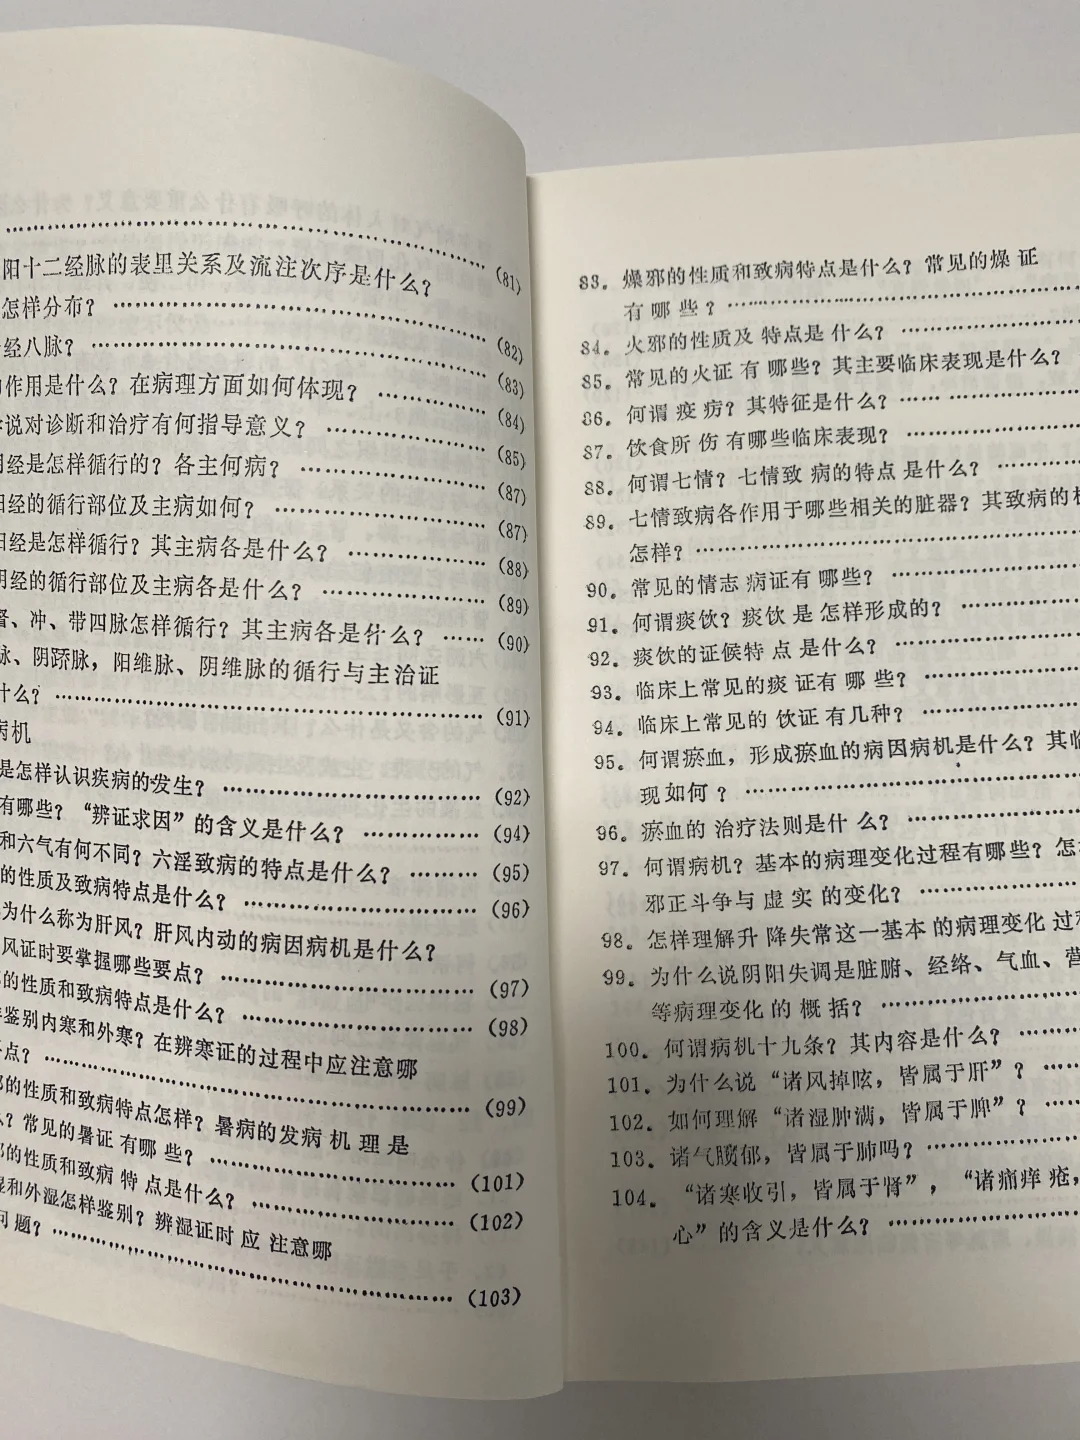 ……………………………………(81)
阳十二经脉的表里关系及流注次序是什么？
怎样分布？……………………………(82)
经八脉？………………………………(83)
作用是什么？在病理方面如何体现？…………(84)
说对诊断和治疗有何指导意义？……………(85)
经是怎样循行的？各主何病？………………(87)
经的循行部位及主病如何？…………………(87)
经是怎样循行？其主病各是什么？…………(88)
经的循行部位及主病各是什么？……………(89)
、冲、带四脉怎样循行？其主病各是什么？……(90)
脉、阴跻脉，阳维脉、阴维脉的循行与主治证
什么？……………………………………(91)
病机
是怎样认识疾病的发生？……………………(92)
有哪些？“辨证求因”的含义是什么？…………(94)
和六气有何不同？六淫致病的特点是什么？………(95)
的性质及致病特点是什么？…………………(96)
为什么称为肝风？肝风内动的病因病机是什么？
风证时要掌握哪些要点？……………………(97)
的性质和致病特点是什么？…………………(98)
鉴别内寒和外寒？在辨寒证的过程中应注意哪
点？……………………………………(99)
的性质和致病特点怎样？暑病的发病机理是
？常见的暑证有哪些？……………………(101)
的性质和致病特点是什么？…………………(102)
湿和外湿怎样鉴别？辨湿证时应注意哪
问题？……………………………………(103)
83．燥邪的性质和致病特点是什么？常见的燥证
有哪些？……………………………………
84．火邪的性质及特点是什么？………………
85．常见的火证有哪些？其主要临床表现是什么？
86．何谓疫疠？其特征是什么？………………
87．饮食所伤有哪些临床表现？………………
88．何谓七情？七情致病的特点是什么？………
89．七情致病各作用于哪些相关的脏器？其致病的机
怎样？……………………………………
90．常见的情志病证有哪些？…………………
91．何谓痰饮？痰饮是怎样形成的？……………
92．痰饮的证候特点是什么？…………………
93．临床上常见的痰证有哪些？………………
94．临床上常见的饮证有几种？………………
95．何谓瘀血，形成瘀血的病因病机是什么？其临
现如何？……………………………………
96．瘀血的治疗法则是什么？…………………
97．何谓病机？基本的病理变化过程有哪些？怎
邪正斗争与虚实的变化？……………………
98．怎样理解升降失常这一基本的病理变化过程
99．为什么说阴阳失调是脏腑、经络、气血、营
等病理变化的概括？…………………………
100．何谓病机十九条？其内容是什么？…………
101．为什么说“诸风掉眩，皆属于肝”？…………
102．如何理解“诸湿肿满，皆属于脾”？…………
103．诸气膹郁，皆属于肺吗？…………………
104．“诸寒收引，皆属于肾”，“诸痛痒疮，
心”的含义是什么？…………………………